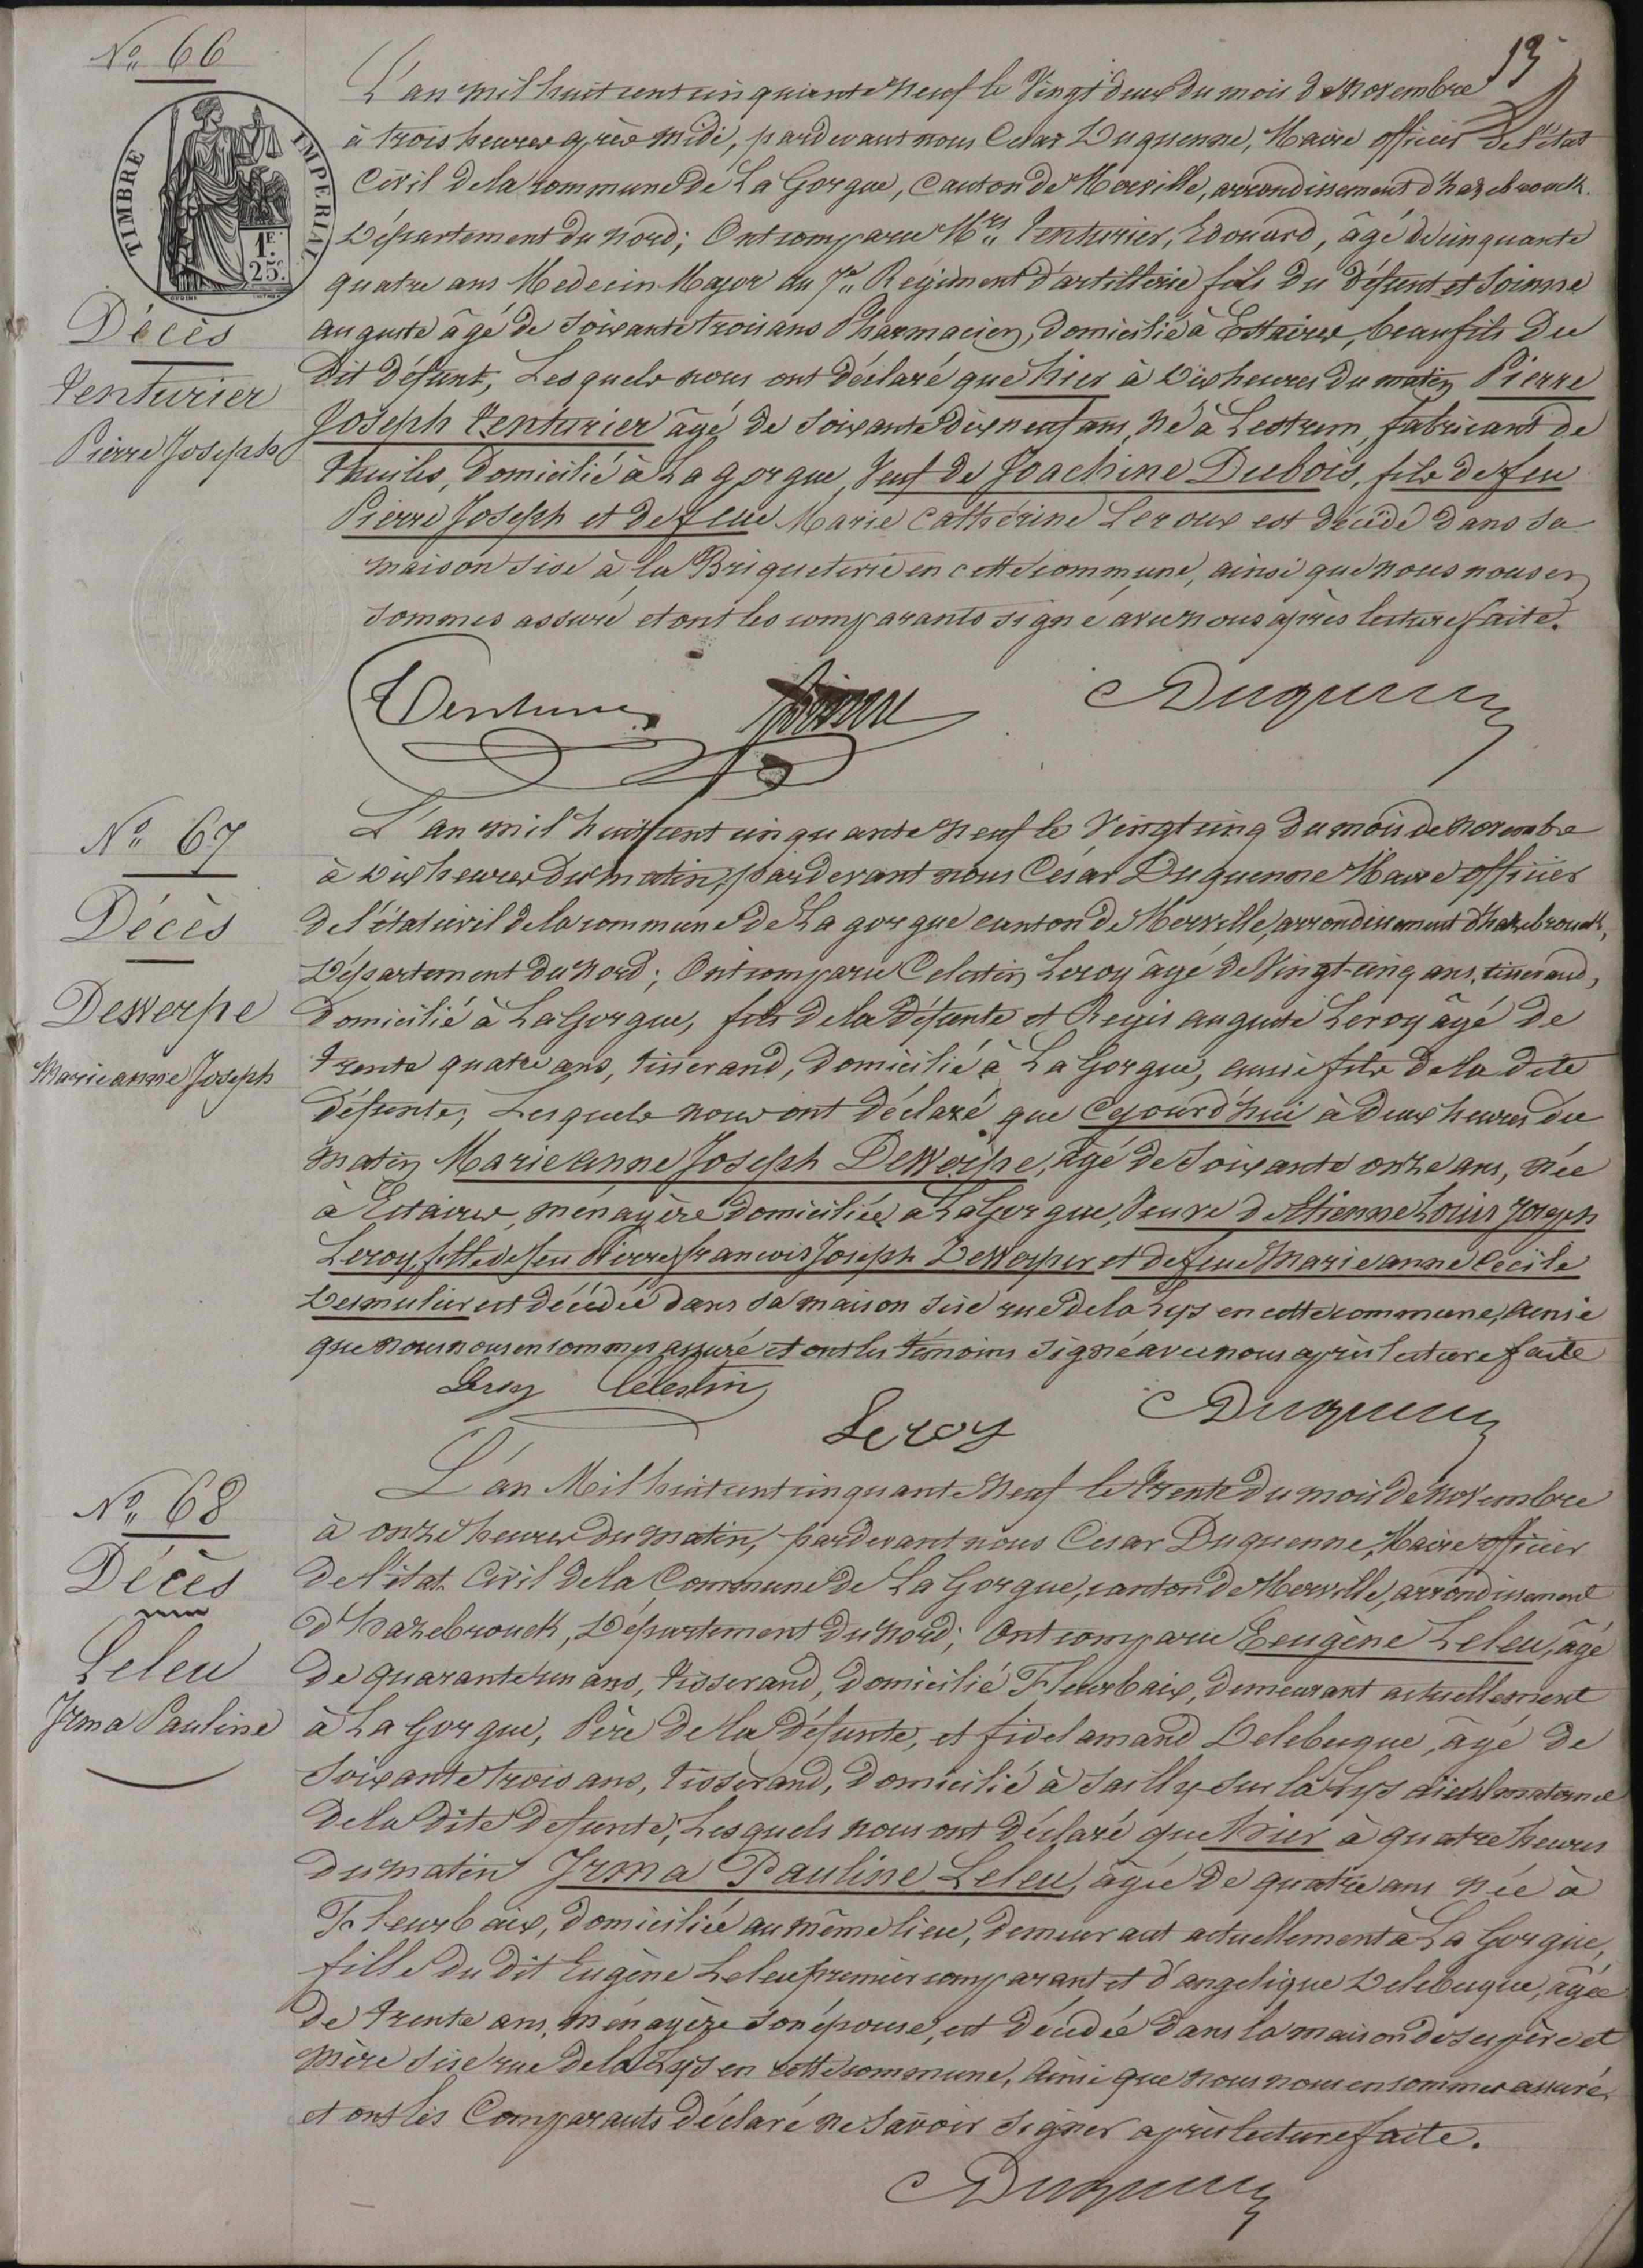 13
N° 66
TIMBRE IMPERIAL
1F.
25c.
Décès
Venturier
Pierre Joseph
L'an mil huit cent cinquante neuf le Vingt deux du mois de Novembre
à trois heures après midi, pardevant nous Cesar Duquenne, Maire officier de l'état
Civil de la commune de La Gorgue, Canton de Merville, arrondissement d'hazebrouck.
Département du Nord; Ont comparu Mrs Venturier, Edouard, âgé de cinquante
quatre ans Medecin Major au 7e Régiment d'artillerie fils du défunt et Soinne
auguste âgé de soixante trois ans Pharmacien, domicilié à Estaires, beau fils du
dit défunt, Lesquels nous ont déclaré que hier à dix heures du matin Pierre
Joseph Venturier âgé de soixante dix neuf ans, né à Lestrem, fabricant de
thuiles, domicilié à La gorgue, Veuf de Joachine Dubois, fils de feu
Pierre Joseph et de feue Marie Cathérine Leroux est décédé dans sa
maison sise à la Briqueterie en cette commune, ainsi que nous nous en
sommes assuré et ont les comparants signé avec nous après lecture faite.
Venturier Soinne CDuquenne
N° 67
Décès
Dewerpe
Marie anne Joseph
L'an mil huit cent cinquante neuf le Vingt cinq du mois de Novembre
à dix heures du matin, pardevant nous César Duquenne Maire officier
de l'état civil de la commune de La gorgue canton de Merville, arrondissement d'hazebrouck,
Département du Nord; Ont comparu Celestin Leroy âgé de Vingt-cinq ans, tisserand,
domicilié à La Gorgue, fils de la défunte et Regis auguste Leroy âgé de
trente quatre ans, tisserand, domicilié à La Gorgue, aussi fils de la dite
défunte; Lesquels nous ont déclaré que cejourd'hui à deux heures du
matin Marie anne Joseph Dewerpe, âgé de soixante onze ans, née
à Estaires, ménagère domiciliée à La Gorgue, Veuve d'Etienne Louis Joseph
Leroy, fille de feu Pierre francois Joseph Dewerper et de feue Marie anne Cécile
Desmulier est décédée dans sa maison sise rue de la Lys en cette commune, ainsi
que nous nous en sommes assuré et ont les témoins signé avec nous après lecture faite
Leroy Célestin
Leroy
CDuquenne
N° 68
Décès
Leleu
Irma Pauline
L'an Mil huit cent cinquante neuf le trente du mois de Novembre
à onze heures du matin, pardevant nous Cesar Duquenne, Maire officier
de l'état Civil de la Commune de La Gorgue, canton de Merville, arrondissement
d'hazebrouck, Département du Nord; Ont comparu Eeugène Leleu, âgé
de quarante un ans, tisserand, domicilié Fleurbaix, demeurant actuellement
à La Gorgue, Père de la défunte, et fidel amand Delebuque, âgé de
soixante trois ans, tisserand, domicilié à Sailly Sur la Lys aieul maternel
de la dite defunte; Lesquels nous ont déclaré que hier à quatre heures
du matin Irma Pauline Leleu, âgée de quatre ans née à
Fleurbaix, domiciliée au même lieu, demeurant actuellement à La Gorgue,
fille du dit Eugène Leleu premier comparant, et d'angelique Delebuque, âgée
de trente ans, ménagère son épouse, est décédée dans la maison de ses père et
mère sise rue de la Lys en cette commune, ainsi que nous nous en sommes assuré
et ont les Comparants déclaré ne savoir signer après lecture faite.
CDuquenne